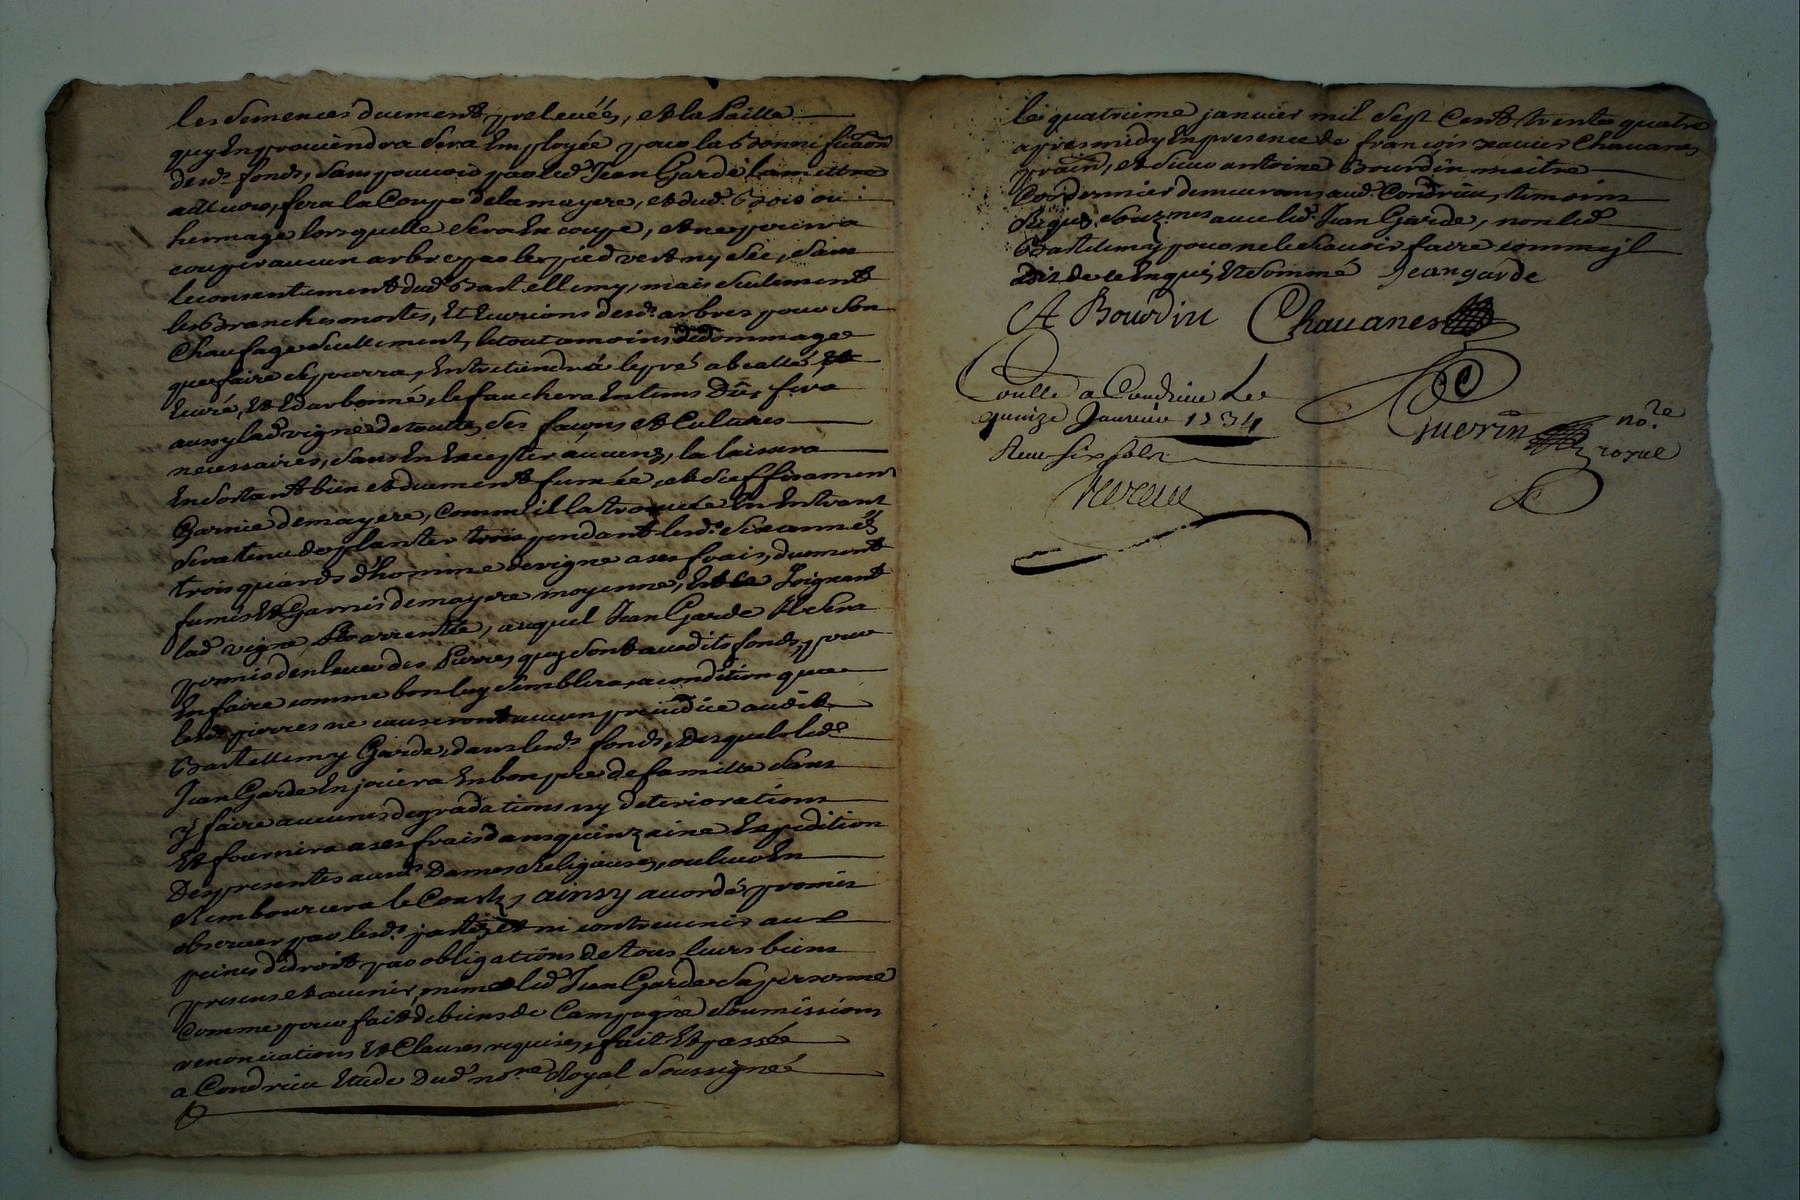 les Semences duement prelevéés, et la Paille
quy En proviendra Sera Employée pour la Bonnification
desd. fonds, Sans pouvoir par led. Jean Garde la mettre
ailleurs, fera la Coupe de la mayere, et dud. Bois ou
hermage lorsquelle Sera En coupe, et ne pourra
couper aucun arbre par le pied vert ny Sec, Sans
le consentement dud. Bartellemy, mais Seulement
les Branches mortes, Et Eurions desd. arbres pour Son
Chaufage Seullement, le tout a moins de dommage
que faire Se pourra, Entretiendra le pré abeallé, Et
Euré, Et Edarbonné, le fauchera En tems Dû, fera
aussy lad. vigne de toutes Ses façons et Cultures
necessaires, Sans En Excepter aucune, la laissera
En Sortant bien et duement fumée, et Suffisament
Garnie de mayere, comme il la trouvée En Entrant
Sera tenu de planter pendant lesd. Six années
trois quards d'homme de vigne a ses frais, duement
fumés Et Garnis de mayere moyenne, Joignant
lad. vigne arrentée, auquel Jean Garde Il Sera
permis d'enlever des Pierres quy Sont auxdits fonds, pour
En faire comme bon luy Semblera, a condition que
lesd. pierres ne causeront aucun prejudice audit
Bartellemy Garde, dans lesd. fonds, Desquels led.
Jean Garde En joüira En bon pere de famille Sans
y faire aucunes degradations ny deteriorations
Et fournira a ses frais dans quinzaine Expedition
Des presentes auxd. Dames Religieuses, ou leur En
Remboursera le Coust, ainsy acordé promis
observer par lesd. parties Et ni contrevenir aux
peines d'droit par obligations de tous leurs biens
presens et avenir, meme led. Jean Garde Sa personne
Comme pour fait de biens de Campagne Soumissions
renonciations Et Clauses requises, fait Et passé
a Condrieu Etude Dud. no.re Royal Soussigné
le quatrieme janvier mil Sept Cent trente quatre
apres midy En presence de francois xavier Chavanes
pratn, et Sieur antoine Bourdin maitre
Cordonnier demeurans aud. Condrieu, temoins
Requis Souznes avec led. Jean Garde, non led.
Bartellemy pour ne le Savoir faire comme jl
a dit de ce Enquis Et Sommé Jean garde
A Bourdin Chavanes
Controllé a Condrieu Le
quinze Janvier 1734
Receu Six Sols
Guerin no.re royal